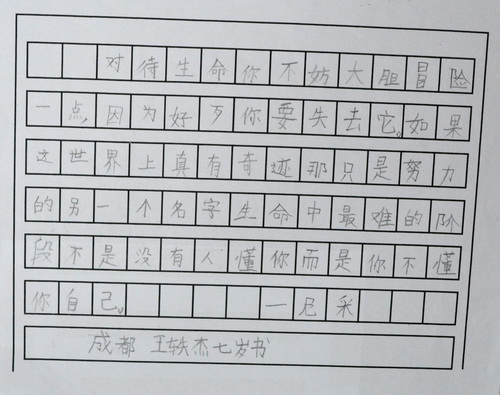 对待生命你不妨大胆冒险
一点,因为好歹你要失去它。如果
这世界上真有奇迹那只是努力
的另一个名字生命中最难的阶
段不是没有人懂你而是你不懂
你自己。 一尼采
成都 王轶杰七岁书